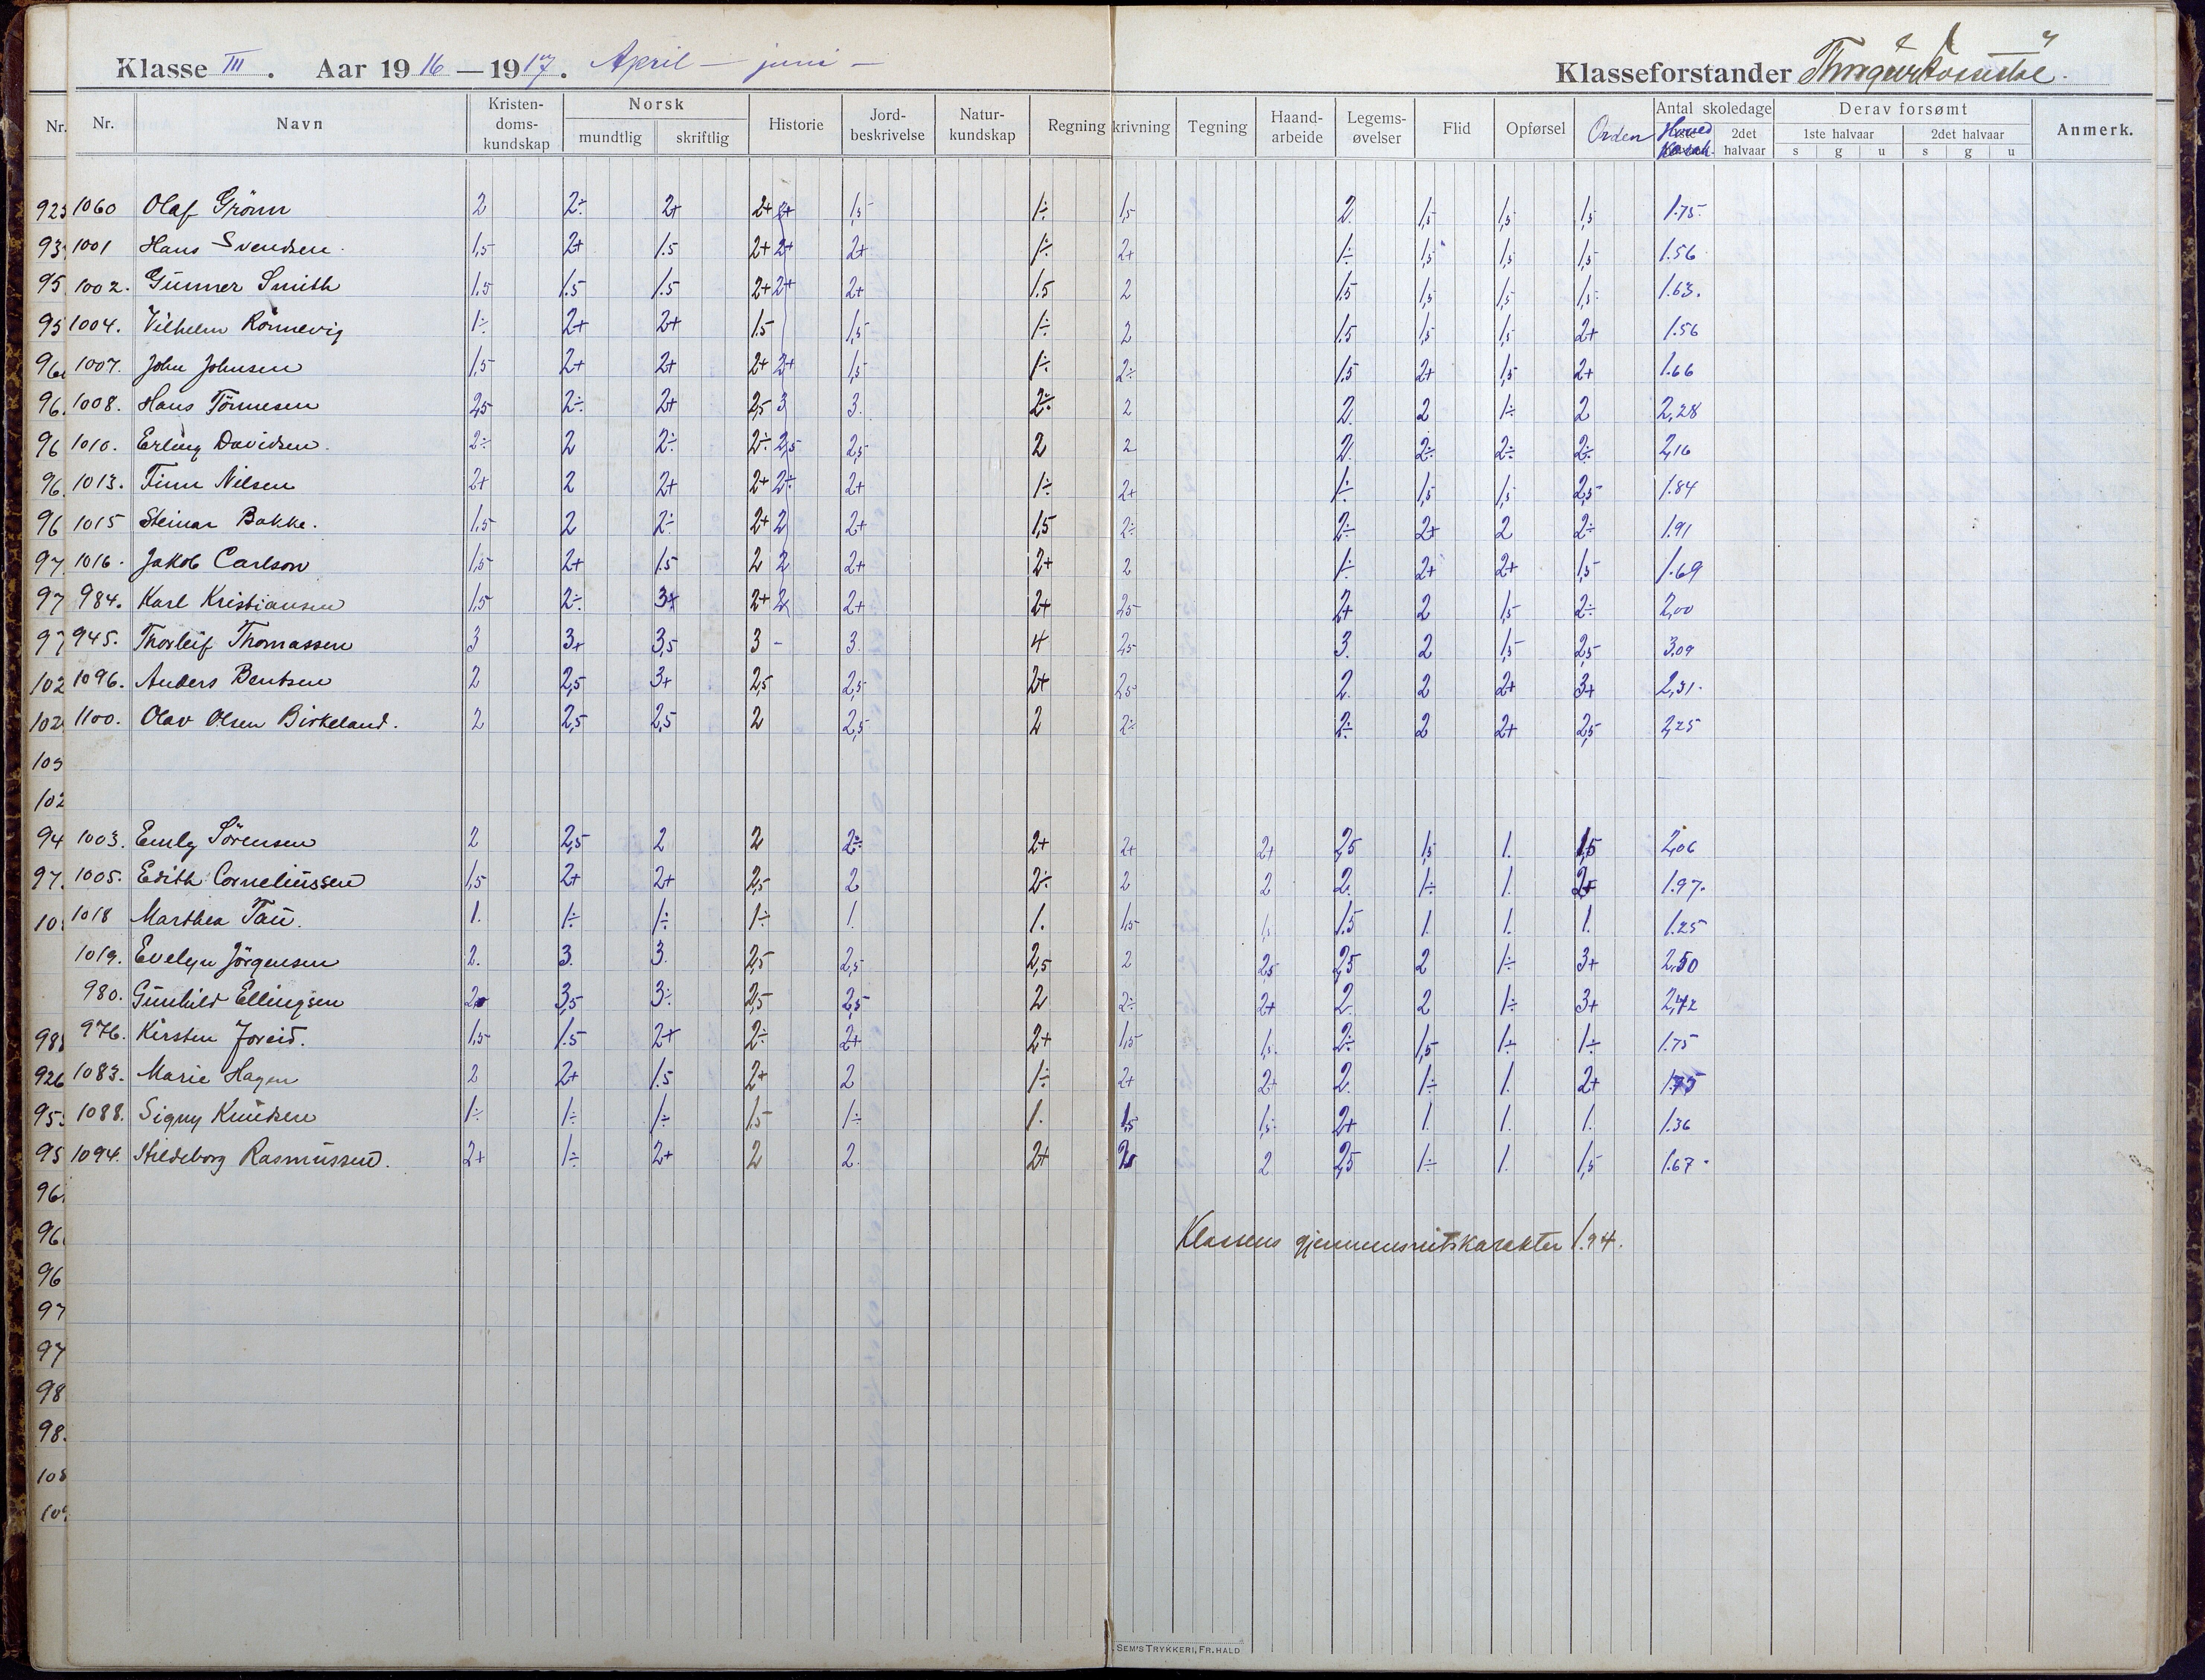 Klasse III. Aar 1916—1917. April — juni — Klasseforstander
Nr. Nr. Navn Kristendoms-kundskap Norsk mundtlig skriftlig Historie Jord-beskrivelse Natur-kundskap Regning krivning Tegning Haand-arbeide Legems-øvelser Flid Opførsel Orden Antal skoledage Hoved 2det halvaar Derav forsømt 1ste halvaar s g u 2det halvaar s g u Anmerk.
923 1060 Olaf Grönn 2 2÷ 2+ 2+ 2+ 1,5 1÷ 1,5 2 1,5 1,5 1,5 1.75.
93 1001 Hans Svendsen. 1,5 2+ 1.5 2+ 2+ 2+ 1÷ 2+ 1÷ 1,5 1,5 1,5 1.56
95 1002. Gunner Smith 1.5 1.5 1.5 2+ 2+ 2+ 1.5 2 1.5 1,5 1,5 1,5 1.63.
95 1004. Vilhelm Rönnevig 1÷ 2+ 2+ 1.5 1,5 1÷ 2 1.5 1,5 1,5 2+ 1.56
96 1007. John Johnsen 1,5 2+ 2+ 2+ 2+ 1,5 1÷ 2÷ 1.5 2+ 1,5 2+ 1.66
96. 1008. Hans Tönnesen 2,5 2÷ 2+ 2,5 3 3. 2÷ 2 2. 2 1÷ 2 2,28
96 1010. Erling Davidsen. 2÷ 2 2÷ 2÷ 2,5 2,5 2 2 2. 2÷ 2÷ 2÷ 2,16
96. 1013. Finn Nilsen 2+ 2 2+ 2+ 2÷ 2+ 1÷ 2+ 1÷ 1,5 1,5 2,5 1.84
96 1015 Steinar Bakke. 1,5 2 2÷ 2+ 2 2+ 1,5 2÷ 2÷ 2+ 2 2÷ 1.91
97. 1016. Jakob Carlson 1,5 2+ 1.5 2 2 2+ 2+ 2 1÷ 2+ 2+ 1,5 1.69
97 984. Karl Kristiansen 1,5 2÷ 3+ 2+ 2 2+ 2+ 2,5 2+ 2 1,5 2÷ 2,00
97 945. Thorleif Thomassen 3 3+ 3,5 3 - 3. 4 2,5 3. 2 1,5 2,5 3.09
102 1096. Anders Bentsen 2 2,5 3+ 2,5 2,5 2+ 2,5 2. 2 2+ 3+ 2,31.
102 1100. Olav Olsen Birkeland. 2 2,5 2,5 2 2,5 2 2÷ 2÷ 2 2+ 2,5 2,25
103
102
94 1003. Emly Sörensen 2 2,5 2 2 2÷ 2+ 2+ 2+ 2,5 1,5 1. 1,5 2,06
97. 1005. Edith Corneliussen 1,5 2+ 2+ 2,5 2 2÷ 2 2 2. 1÷ 1. 2+ 1.97.
10 1018 Marthea Tau. 1. 1÷ 1÷ 1÷ 1. 1. 1,5 1,5 1.5 1. 1. 1. 1.25
1019. Evelyn Jörgensen 2. 3. 3. 2,5 2,5 2,5 2 2,5 2,5 2 1÷ 3+ 2.50
980. Gunhild Ellingsen 3,5 3÷ 2,5 2,5 2 2÷ 2+ 2. 2 1÷ 3+ 2,42
98 976. Kirsten Joreid. 1,5 1.5 2+ 2÷ 2+ 2+ 1,5 1,5 2÷ 1,5 1÷ 1÷ 1.75
926 1083. Marie Hagen 2 2+ 1.5 2+ 2 1÷ 2+ 2+ 2. 1÷ 1. 2+ 1.75
953 1088. Signy Knudsen 1÷ 1÷ 1÷ 1,5 1÷ 1. 1,5 1,5 2+ 1. 1. 1. 1.36
95 1094. Hildeborg Rasmussen. 2+ 1÷ 2+ 2 2. 2+ 2 2,5 1÷ 1. 1,5 1.67.
96
96 Klassens gjennemsnitskarakter 1.94.
96
97
97
98
98.
108
109
SEM'S TRYKKERI, FR. HALD